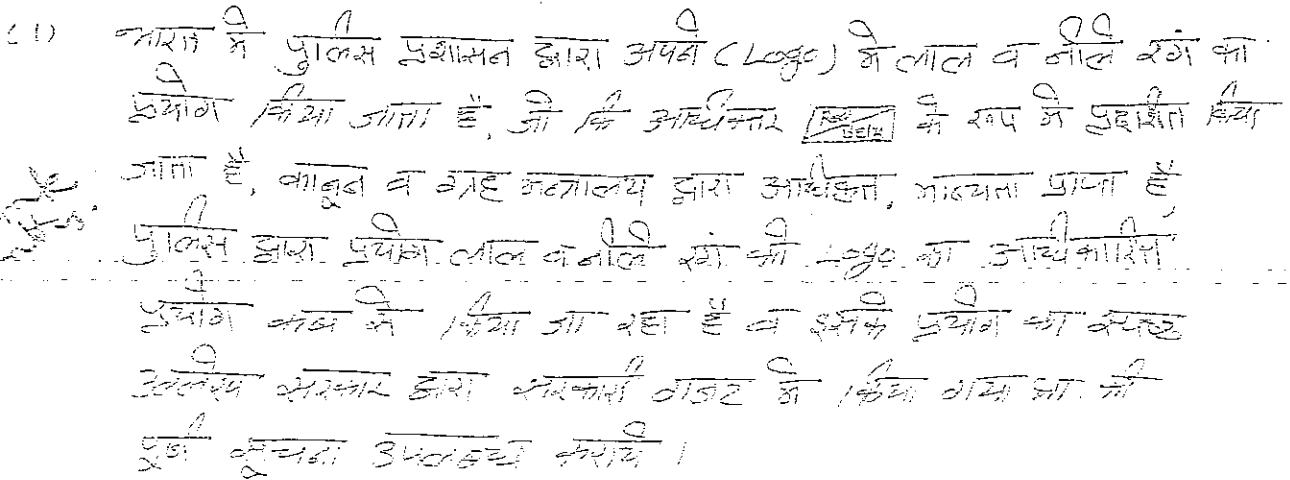 (1) भारत मे पुलिस प्रशासन द्वारा अपने (Logo) मे लाल व नीले रंग का
प्रयोग किया जाता है, जो कि अधिकतर के रूप मे प्रदर्शित किया
जाता है, कानून व ग्रह मन्त्रालय द्वारा अधिकृत, मान्यता प्राप्त है,
पुलिस द्वारा प्रयोग लाल व नीले रंग की Logo का आधिकारिक
प्रयोग कब से किया जा रहा है व इसके प्रयोग का स्पष्ट
उल्लेख सरकार द्वारा सरकारी गजट मे किया गया था की
पूर्ण सूचना उपलब्ध कराये ।